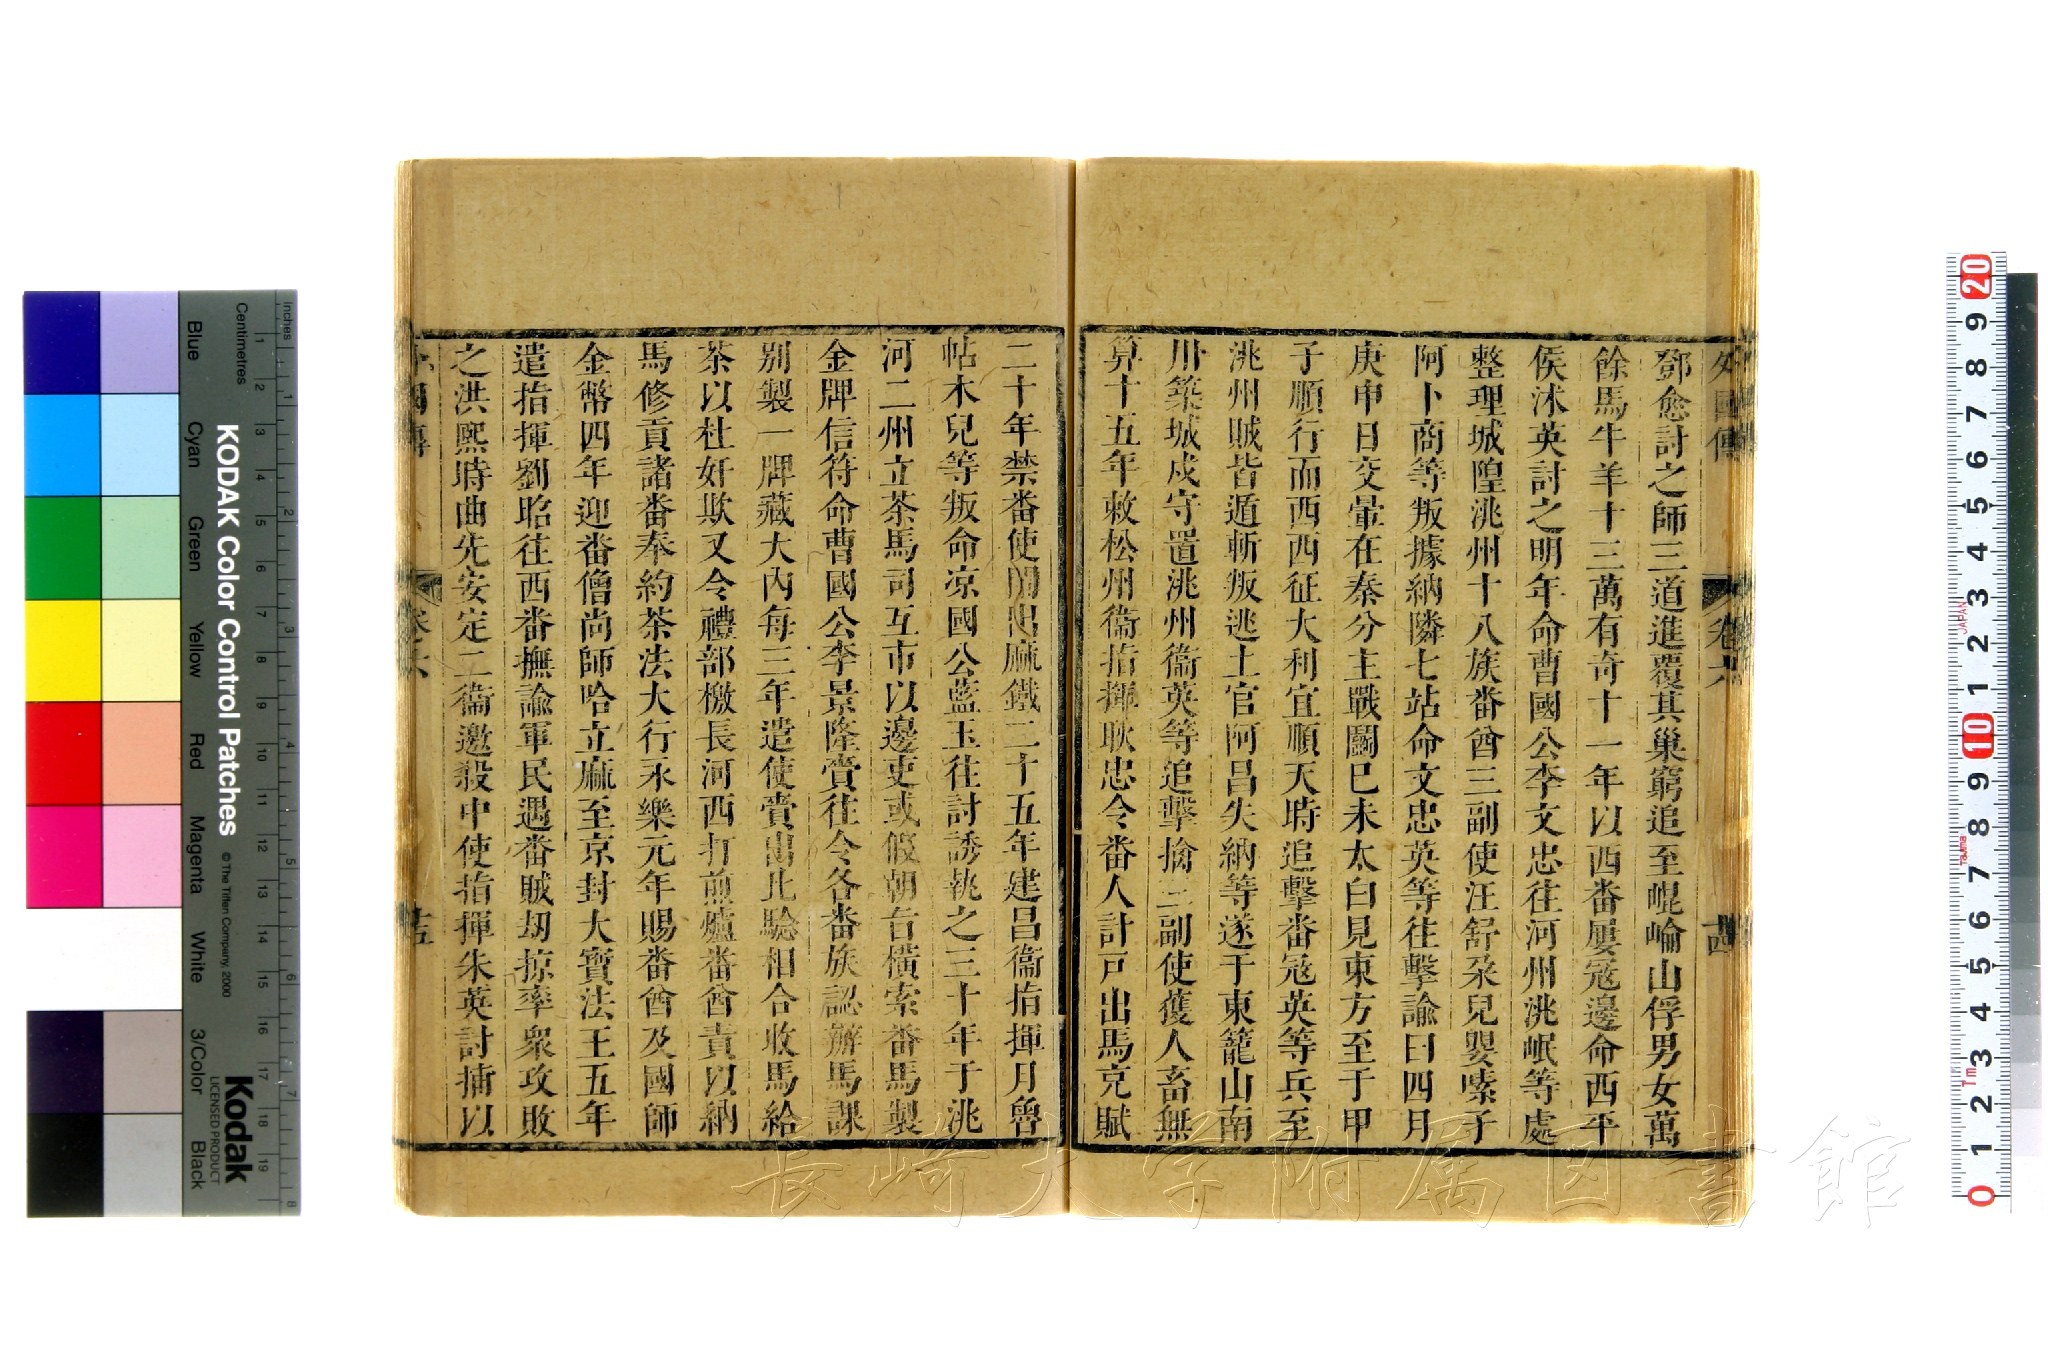 外國傳 卷六 十四
鄧愈討之師三道進覆其巢窮追至崐崘山俘男女萬
餘馬牛羊十三萬有奇十一年以西番屢寇邊命西平
侯沐英討之明年命曹國公李文忠往河州洮岷等處
整理城隍洮州十八族番酋三副使汪舒朶兒嬰嗉子
阿卜商等叛據納隣七站命文忠英等往擊諭曰四月
庚申日交暈在秦分主戰鬭巳未太白見東方至于甲
子順行而西西征大利宜順天時追擊番寇英等兵至
洮州賊皆遁斬叛逃土官阿昌失納等遂于東籠山南
川築城戍守置洮州衞英等追擊擒三副使獲人畜無
算十五年敕松州衞指揮耿忠令番人計戸出馬克賦
二十年禁番使闌出麻鐵二十五年建昌衞指揮月魯
帖木兒等叛命凉國公藍玉往討誘執之三十年于洮
河二州立茶馬司互市以邊吏或假朝旨橫索番馬製
金牌信符命曹國公李景隆賫往令各番族認辦馬課
别製一牌藏大內每三年遣使賫出比驗相合收馬給
茶以杜奸欺又令禮部檄長河西打煎爐番酋責以納
馬修貢諸番奉約茶法大行永樂元年賜番酋及國師
金幣四年迎番僧尚師哈立麻至京封大寶法王五年
遣指揮劉昭往西番撫諭軍民遇番賊刼掠率衆攻敗
之洪熙時曲先安定二衞邀殺中使指揮朱英討捕以
外國傳 卷之六 十五
長崎大学附属図書館
KODAK Color Control Patches
© The Tiffen Company, 2000
Kodak
LICENSED PRODUCT
Inches
Centimetres
Blue
Cyan
Green
Yellow
Red
Magenta
White
3/Color
Black
JAPAN